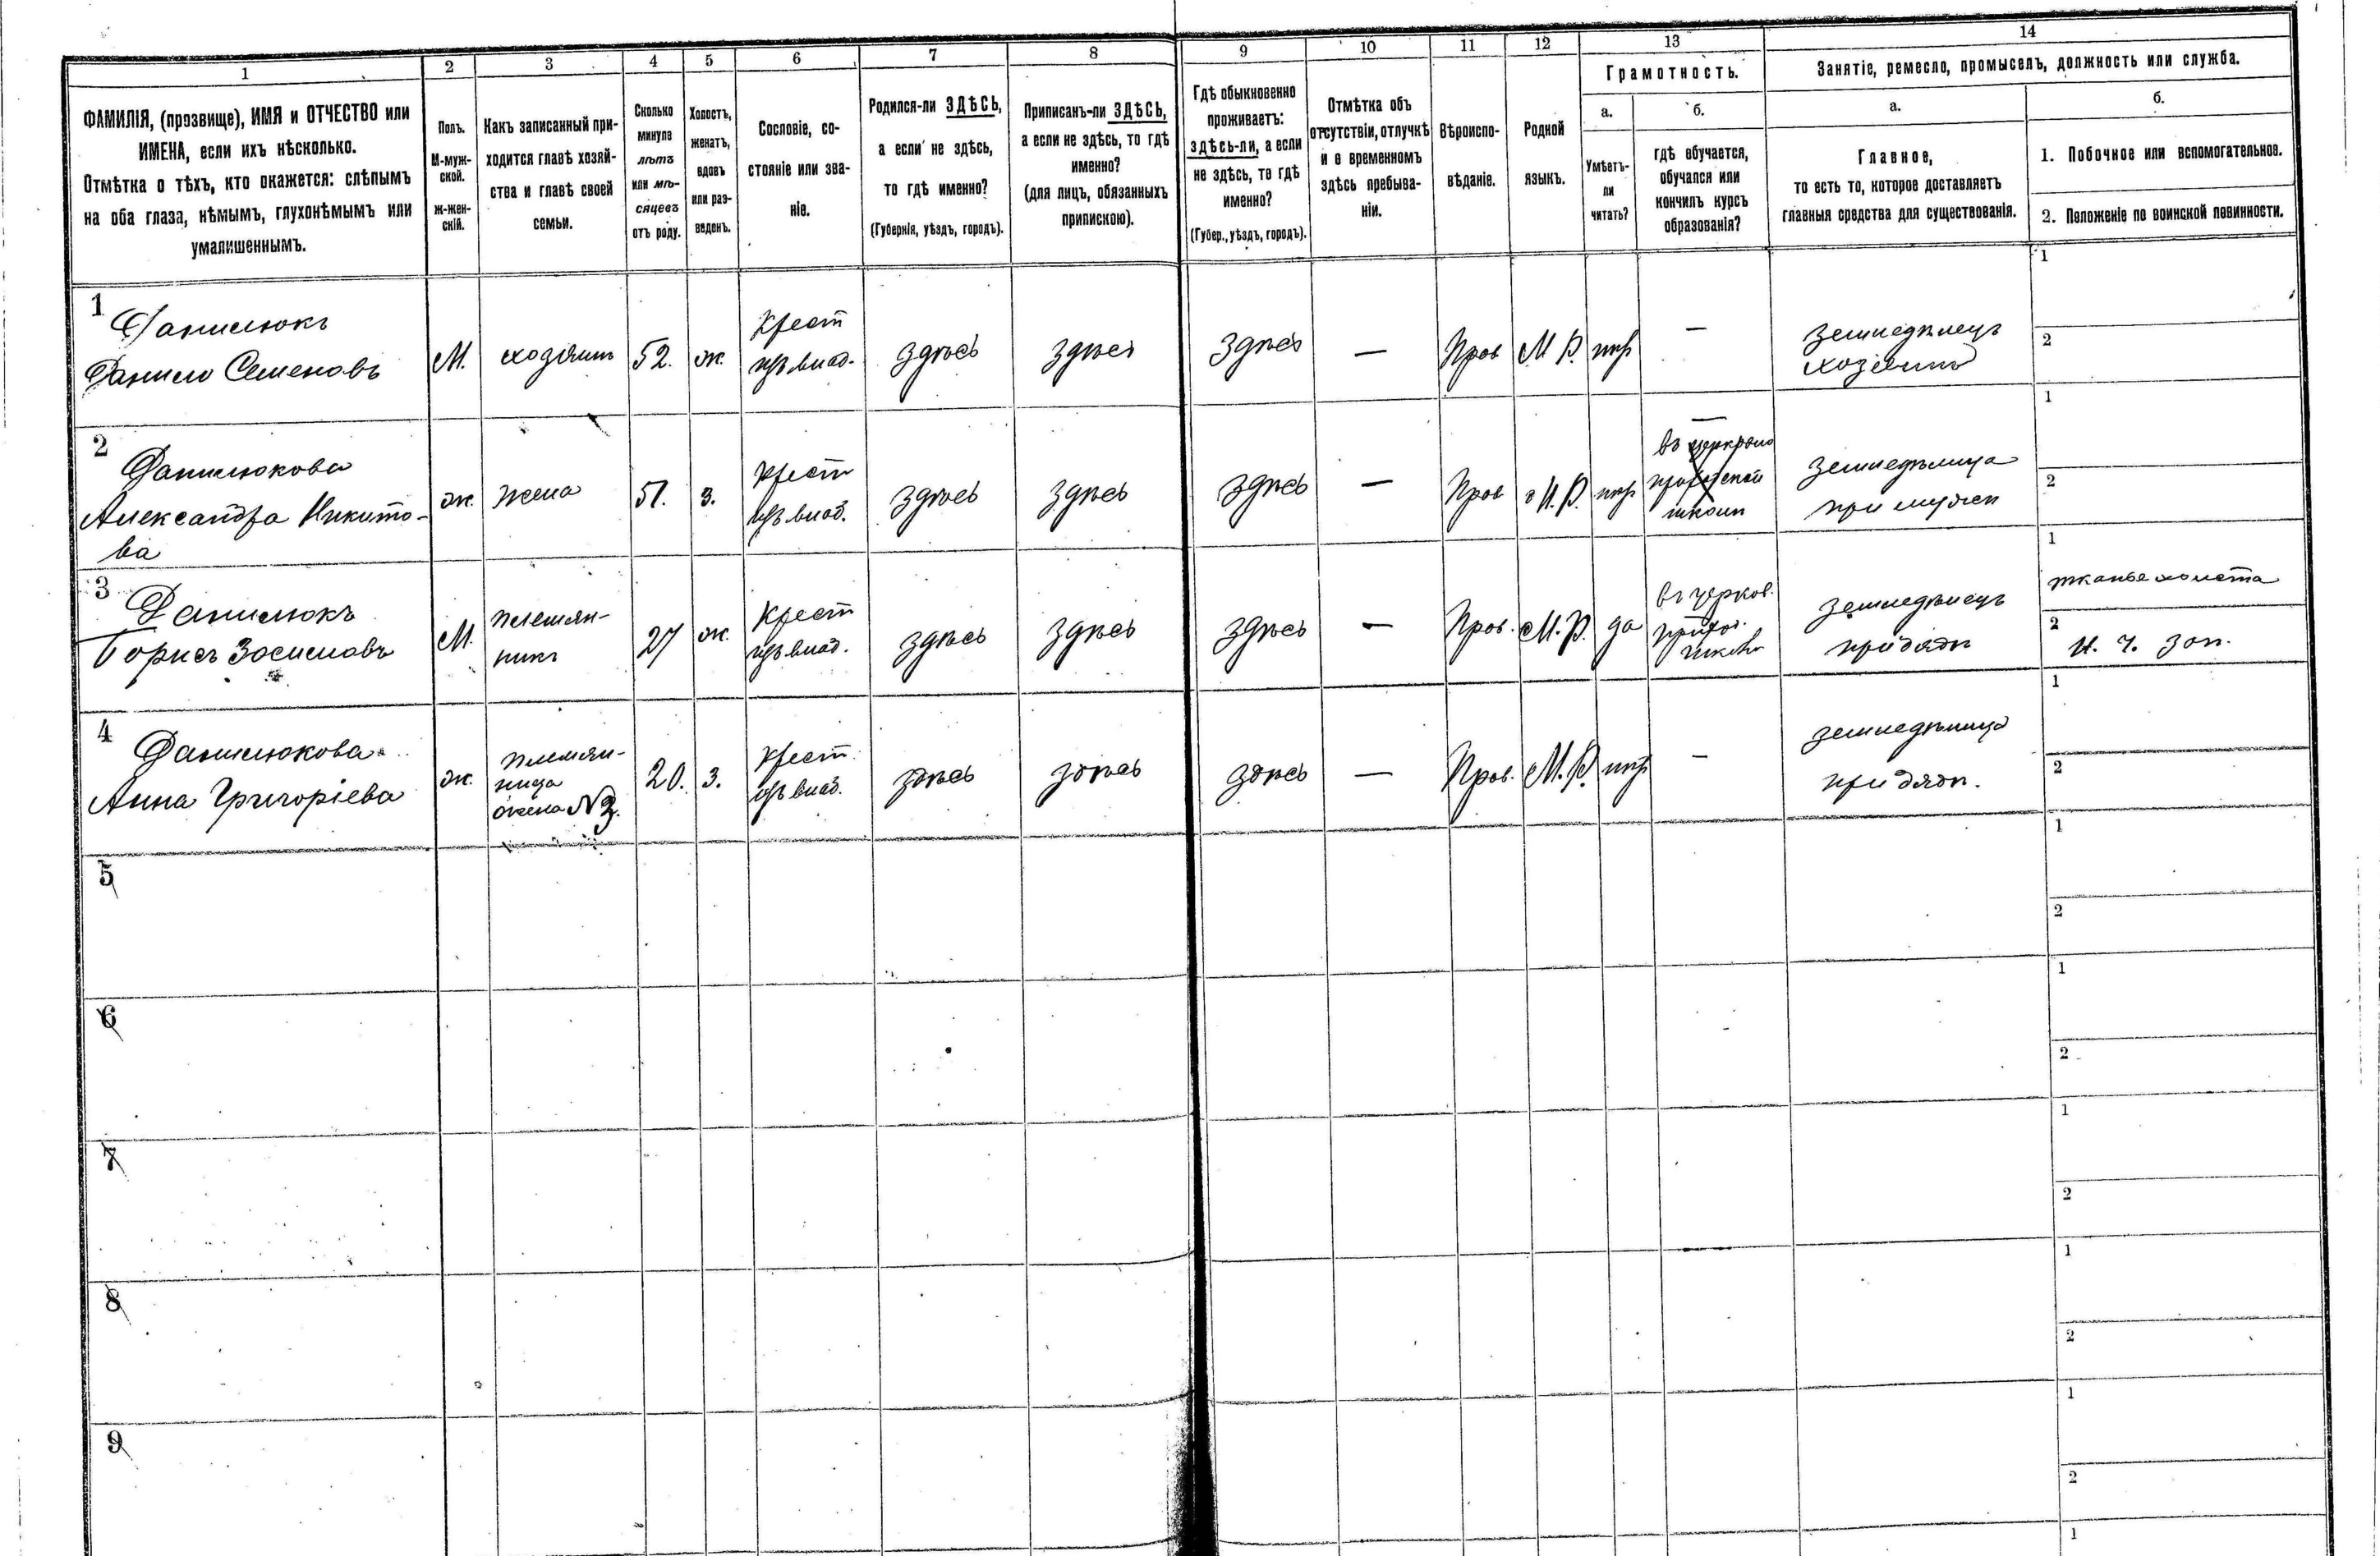 1 2 3 4 5 6 7 8 9 10 11 12 13 14
ФАМИЛІЯ, (прозвище), ИМЯ и ОТЧЕСТВО или
ИМЕНА, если ихъ нѣсколько.
Отмѣтка о тѣхъ, кто окажется: слѣпымъ
на оба глаза, нѣмымъ, глухонѣмымъ или
умалишеннымъ.
Полъ.
М-муж-
ской.
Ж-жен-
скій.
Какъ записанный при-
ходится главѣ хозяй-
ства и главѣ своей
семьи.
Сколько
минуло
лѣтъ
или мѣ-
сяцевъ
отъ роду.
Холостъ,
женатъ,
вдовъ
или раз-
веденъ.
Сословіе, со-
стояніе или зва-
ніе.
Родился-ли ЗДѢСЬ,
а если не здѣсь,
то гдѣ именно?
(Губернія, уѣздъ, городъ).
Приписанъ-ли ЗДѢСЬ,
а если не здѣсь, то гдѣ
именно?
(для лицъ, обязанныхъ
припискою).
Гдѣ обыкновенно
проживаетъ:
здѣсь-ли, а если
не здѣсь, то гдѣ
именно?
(Губер., уѣздъ, городъ).
Отмѣтка объ
отсутствіи, отлучкѣ
и о временномъ
здѣсь пребыва-
ніи.
Вѣроиспо-
вѣданіе.
Родной
языкъ.
Грамотность.
а.
Умѣетъ-
ли
читать?
б.
гдѣ обучается,
обучался или
кончилъ курсъ
образованія?
Занятіе, ремесло, промыселъ, должность или служба.
а.
Главное,
то есть то, которое доставляетъ
главныя средства для существованія.
б.
1. Побочное или вспомогательное.
2. Положеніе по воинской повинности.
1
Данилюкъ
Данило Семеновъ
М.
хозяинъ
52.
ж.
Крест
изъ влад.
здѣсь
здѣсь
здѣсь
—
Прав
М Р.
нѣтъ
—
земледѣлецъ
хозяинъ
1
2
2
Данилюкова
Александра Никито-
ва
ж.
жена
51.
з.
Крест
изъ влад.
здѣсь
здѣсь
здѣсь
—
Прав
М. Р.
нѣтъ
—
земледѣлица
при мужѣ
1
2
3
Данилюкъ
Борисъ Зосимовъ
М.
племян-
никъ
27
ж.
Крест
изъ влад.
здѣсь
здѣсь
здѣсь
—
Прав.
М. Р.
да
въ церков.
приход.
школѣ
земледѣлецъ
при дядѣ
1
тканье холста
2
Н. Ч. зап.
4
Данилюкова
Анна Григоріева
ж.
племян-
ница
жена №3.
20.
з.
Крест.
изъ влад.
здѣсь
здѣсь
здѣсь
—
Прав.
М. Р.
нѣтъ
—
земледѣлица
при дядѣ.
1
2
5
1
2
6
1
2
7
1
2
8
1
2
9
1
2
1